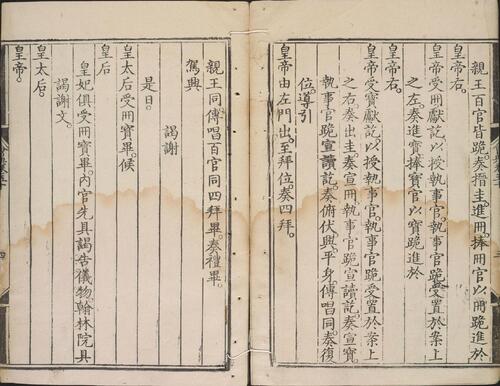 親王百官皆跪。奏搢圭進冊。捧冊官以冊跪進於
皇帝右。
皇帝受冊獻訖以授執事官。執事官跪受置於案上
之左。奏進寶捧寶官以寶跪進於
皇帝右。
皇帝受寶獻訖以授執事官。執事官跪受置於案上
之右。奏出圭。奏宣冊執事官跪宣讀訖。奏宣寶。
執事官跪宣讀訖。奏俯伏興。平身傳唱同奏復
位。導引
皇帝由左門出。至拜位。奏四拜。
親王同傳唱百官同四拜畢。奏禮畢。
駕興
謁謝
是日。
皇太后受冊寶畢。候
皇后
皇妃俱受冊寶畢。內官先具謁告儀物翰林院具
謁謝文。
皇太后
皇帝。